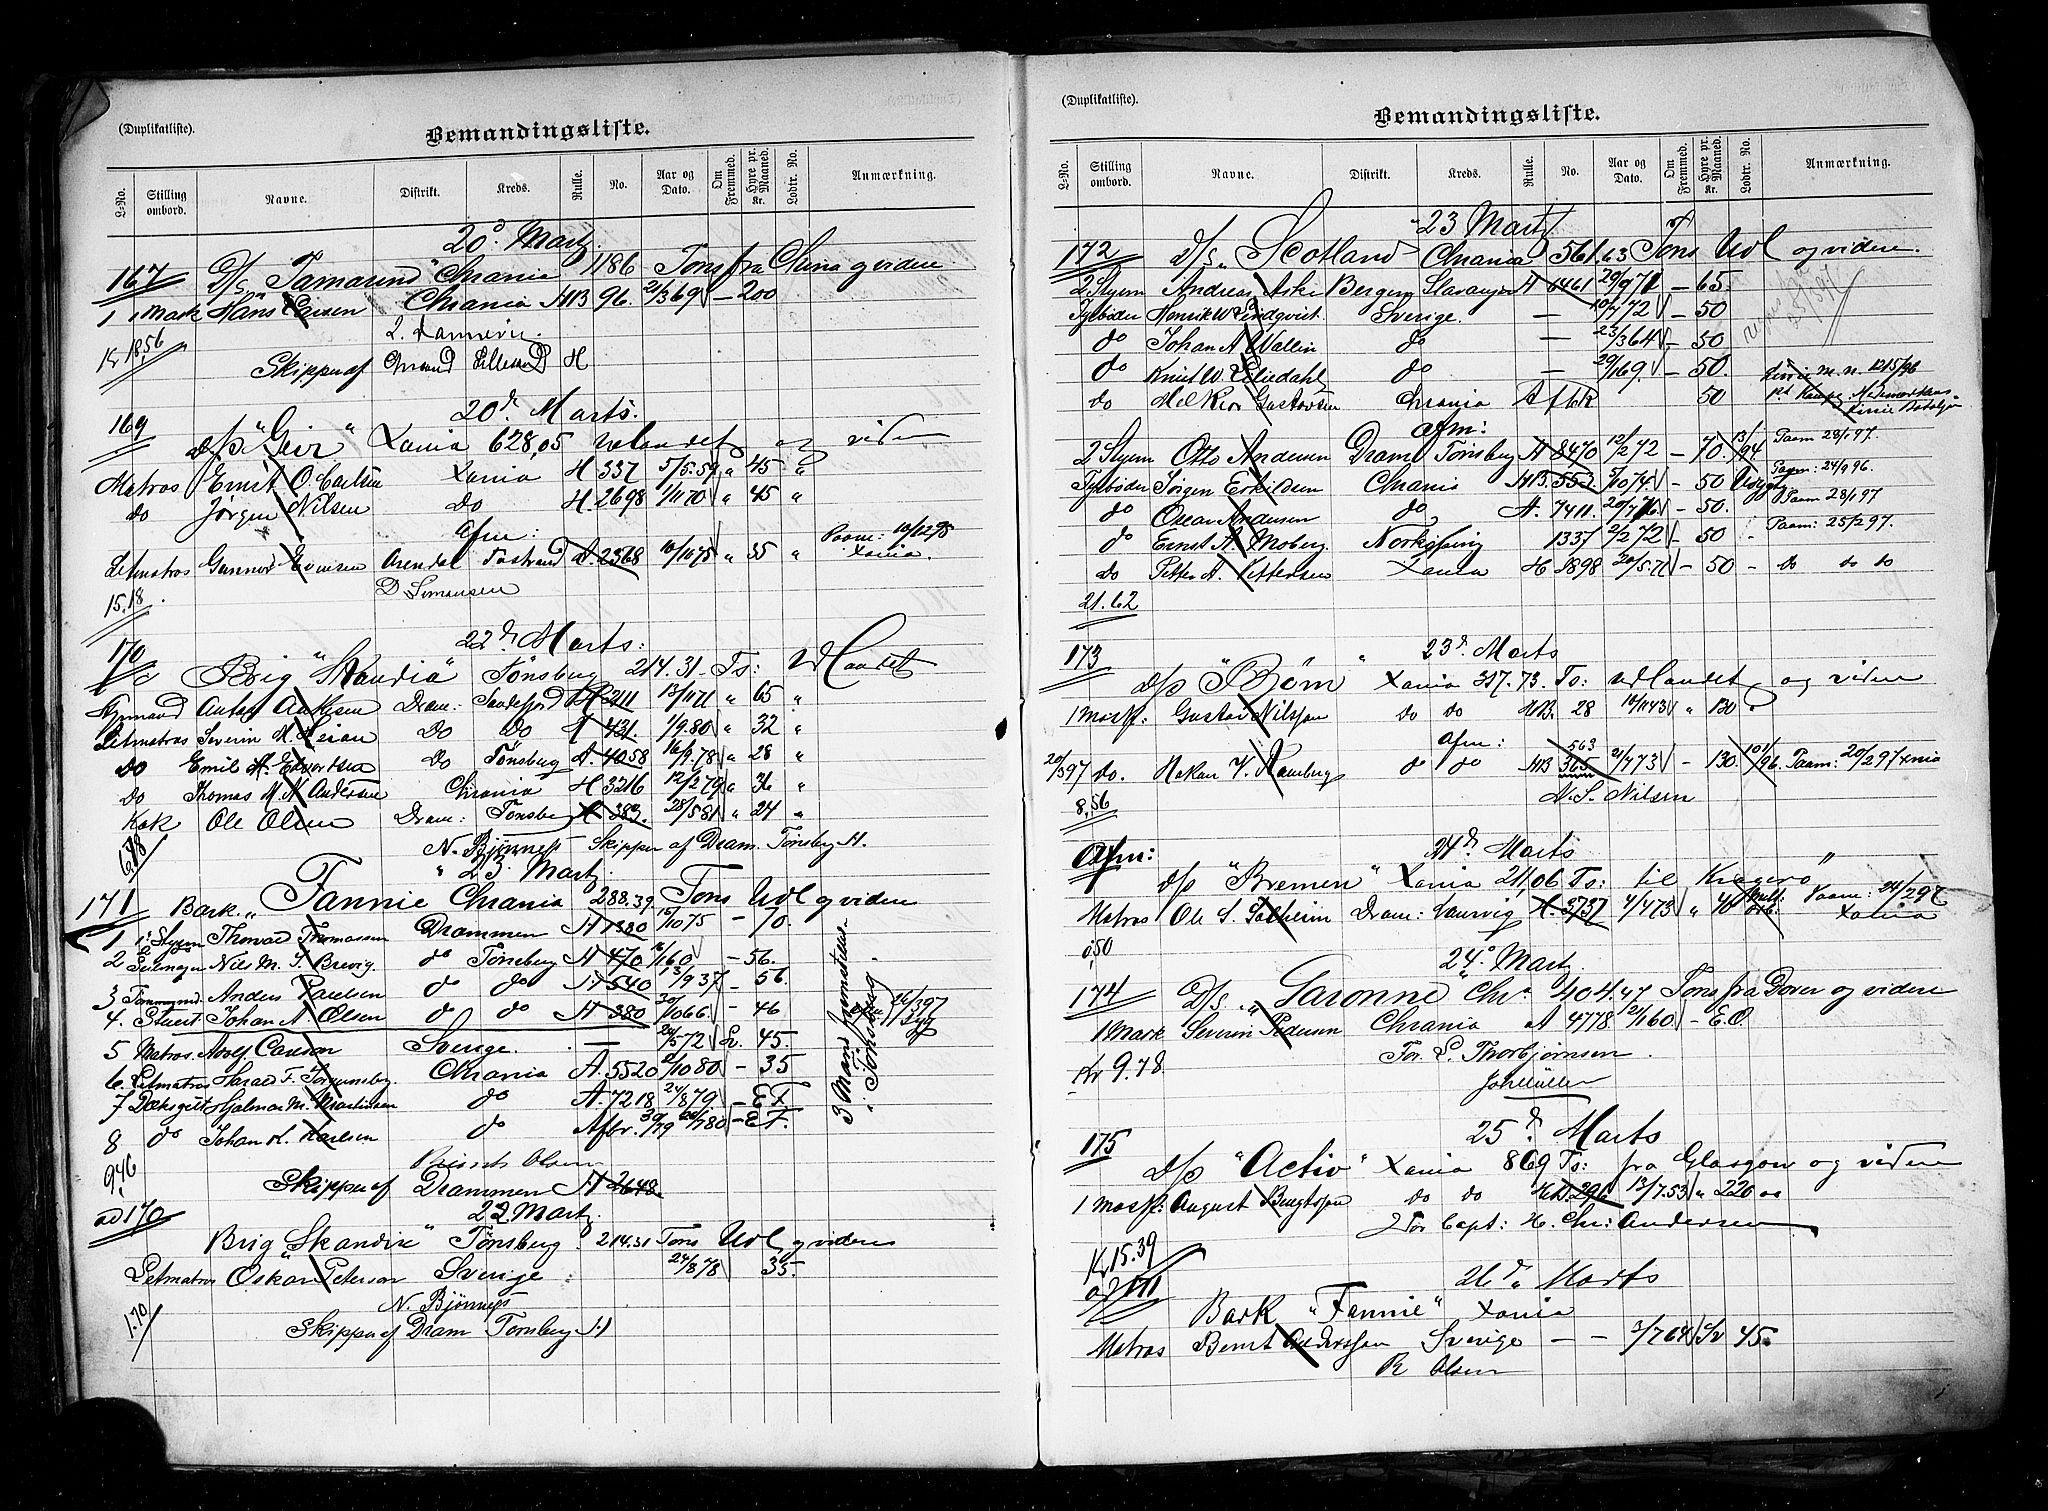 (Duplikatliste).
Bemandingsliste.
L-No. Stilling ombord. Navne. Distrikt. Kreds. Rulle. No. Aar og Dato. Om Fremmed. Hyre pr. Maaned. Kr. Lodtr. No. Anmærkning.
20d Martz.
167 D/s „Tamarind" Chrania 1186 Tons fra China og videre
1 1 Mask Hans Larsen Chrania HB 96. 21/3 69 - 200
Kr 18,56
Skipper af H
20de Marts.
169 d/s "Geir" Xania 628,05 udlandet og viden
Matros Ernst O. Carlsen Xania H. 337 5/5.59 " 45 "
do Jørgen Nilsen do H. 2698 1/11 70 " 45 "
Afm:
Letmatros Gunnar Evensen Arendal A. 2368 10/11 75 " 35 " Paam: 10/12 95 Xania.
15,18 D Simonsen
22de Marts:
170 Brig "Skandia" Tønsberg 214.31 Ts: udlandet
Styrmand Anton Dram: Sandefjord H 2111 13/11 71 " 65 "
Letmatros Severin M. do do A 431. 1/9.80 " 32 "
do Emil H. Edvardsen do Tønsberg A. 4058 16/9.78 " 28 "
do Thomas M. N. Andersen Chrania H 3216 12/2 79 " 36 "
Kok Ole Olsen Dram: Tønsberg A 383. 28/5 81 " 24 "
6,78 N. Bjønness Skipper af Dram. Tønsberg H.
" 23 Martz.
171 Bark „Fannie Chrania 288.39 Tons Udl og videre
1 1. Styrm Thorvald Thomassen Drammen H 1380 15/10 75 - 70.
2 Seilmager Nils M. S. Brevig. do Tønsberg H 470 16/1 60 - 56.
3 Tømmermd. Anders Paulsen do do H 540 13/9 37 - 56.
4. Stuert. Johan A. Olsen do do H 380 30/10 66. - 46
5 Matros Adolf Carlson Sverige. — 20/5 72 Sv. 45.
6. Letmatros Harald F. Jørgensberg. Chrania A. 5520 2/10 80 - 35
7 Dæksgutt Hjalmar M. Martinsen do A. 7218 24/8 79 - E F
8 do Johan H. Karlsen do Afbr. 30/1 79 20/7 80 - E F.
3 Mand fremstillet i Tønsberg 26/3 97
9,46 Olsen
Skipper af Drammen H 2648.
ad 170 22 Martz
Brig „Skandia" Tønsberg 214.31 Tons Udl og videre
Letmatros Oskar Peterson Sverige 24/8 78 35.
1.70 N. Bjønness
Skipper af Dram Tønsberg H
(Duplikatliste).
Bemandingsliste.
L-No. Stilling ombord. Navne. Distrikt. Kreds. Rulle. No. Aar og Dato. Om Fremmed. Hyre pr. Maaned. Kr. Lodtr. No. Anmærkning.
23 Martz
172 D/s „Scotland Chrania 561.63 Tons Udl og videre.
2 Styrm Andreas Aske Bergen Stavanger A 6461 29/9 71 - 65.
Fyrbøder Henrik W Lindqvist. Sverige. — 10/7 72 - 50
do Johan A Wallin do — 23/3 64 - 50
do Knut W. Liliedahl do — 29/1 69. - 50.
do Melkior Gustavsen Chrania Afbr. 50
Afm:
2 Styrm Otto Andersen Dram Tønsberg A 8470 12/2 72 - 70. 13/94 Paam 28/1 97.
Fyrbøder Jørgen Eskildsen Chrania HB. 553 5/10 74 - 50 Udygtig Paam: 24/9 96.
do Oscar Andersen do A. 7411. 20/7 76 - 50. Paam 28/1 97
do Ernst A. Moberg. Norkøping 1337 2/2 72 - 50 - Paam: 25/2 97.
do Petter A. Pettersen Xania H 3898 20/5.71 - 50 - do do do
21.62
23de Marts
173 d/s "Bøm" Xania 357.73. Ts: udlandet og viden
1 mask: Gustav Nilsson do do HB. 28 16/11 43 " 130 "
Afm:
20/3 97 do. Hakon V. Ramberg do do HB 365 563 21/4 73 - 130. 101/96. Paam: 20/2 97 Xania
8,56 N. S. Nilsen
24de Marts
Afm:
d/s "Bremen" Xania 211,06 Ts: til Kragerø
Matros Ole S. Solheim Dram: Laurvig H. 3737 4/4 73 " 40 Paam: 24/2 97 Xania
0,50
24de Martz.
174 D/s. „Garonne" Chra 404.47 Tons fra Dover og videre
1 Mask Severin Pedersen Chrania A 4778 12/1 60 - E.O.
Kr 9.78 For L. Thorbjørnsen
Joh Müller
25de Marts
175 d/s "Activ" Xania 869 Ts: fra Glasgow og viden
1 mask: August Bengtsson do do HB. 296 13/7.53 " 220 00
For Capt: H. Chr: Andersen
Kr 15.39
ad 171 26de Marts
Bark "Fannie" Xania
Matros Bernt Anderssen Sverige — — 3/7 64 Sv 45.
R Olsen